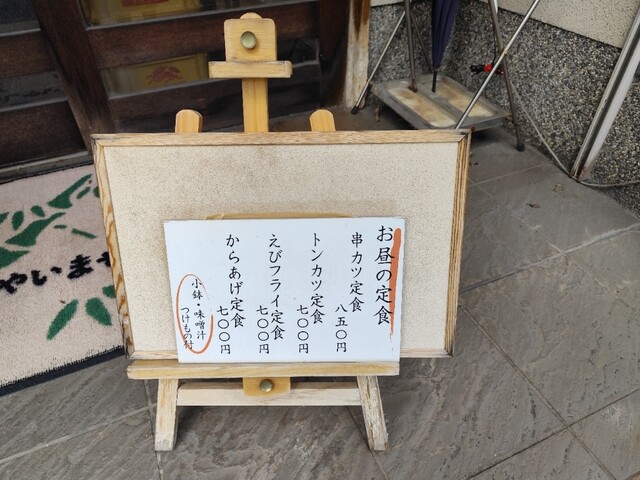 お昼の定食
串カツ定食
八五〇円
トンカツ定食
七〇〇円
えびフライ定食
七〇〇円
からあげ定食
七〇〇円
小鉢・味噌汁
つけもの付
やいませ